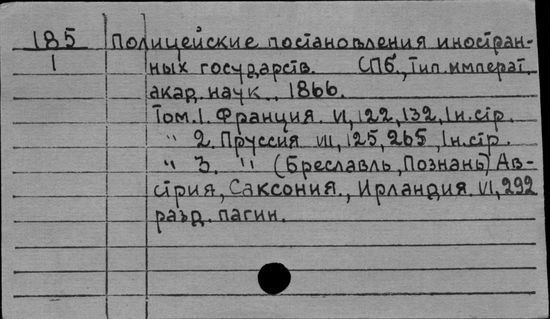 185 Полицейские постановления иностран-
1 ных государств. СПб., Тип. императ.
акад. наук., 1866.
Том. 1. Франция. VI, 122, 132, 1 н. стр.
" 2. Пруссия VIII, 125, 265, 1 н. стр.
" 3. " (Бреславль, Познань) Ав-
стрия, Саксония., Ирландия. VI, 292
разд. пагин.